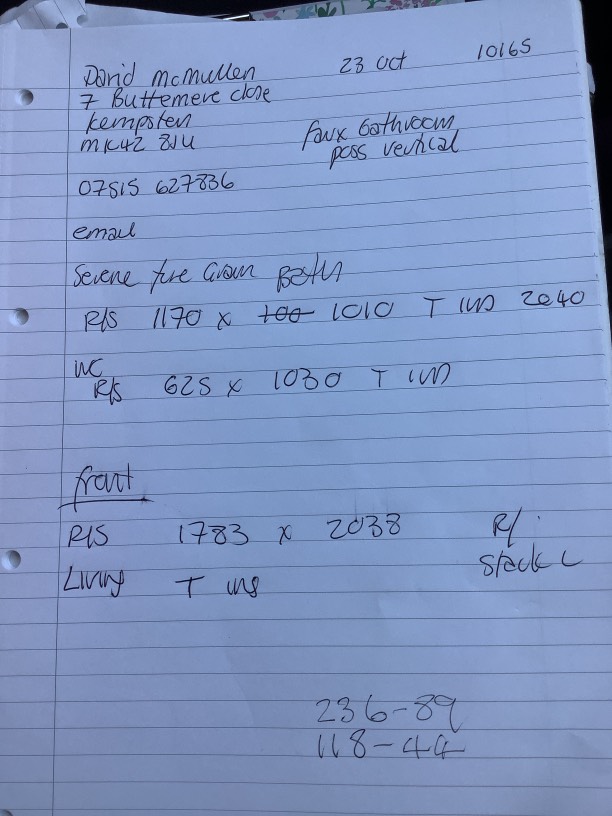 David McMullen 23 Oct 10165
7 Buttemere close
Kempston
MK42 8UU
faux bathroom
poss vertical
07515 627836
email
Serene fire Bath
R/S 1170 x 100 1010 T ins 2040
WC
R/S 625 x 1030 T ins
front
R/S 1783 x 2038 R/
Living T ins Stack L
236-89
118-44